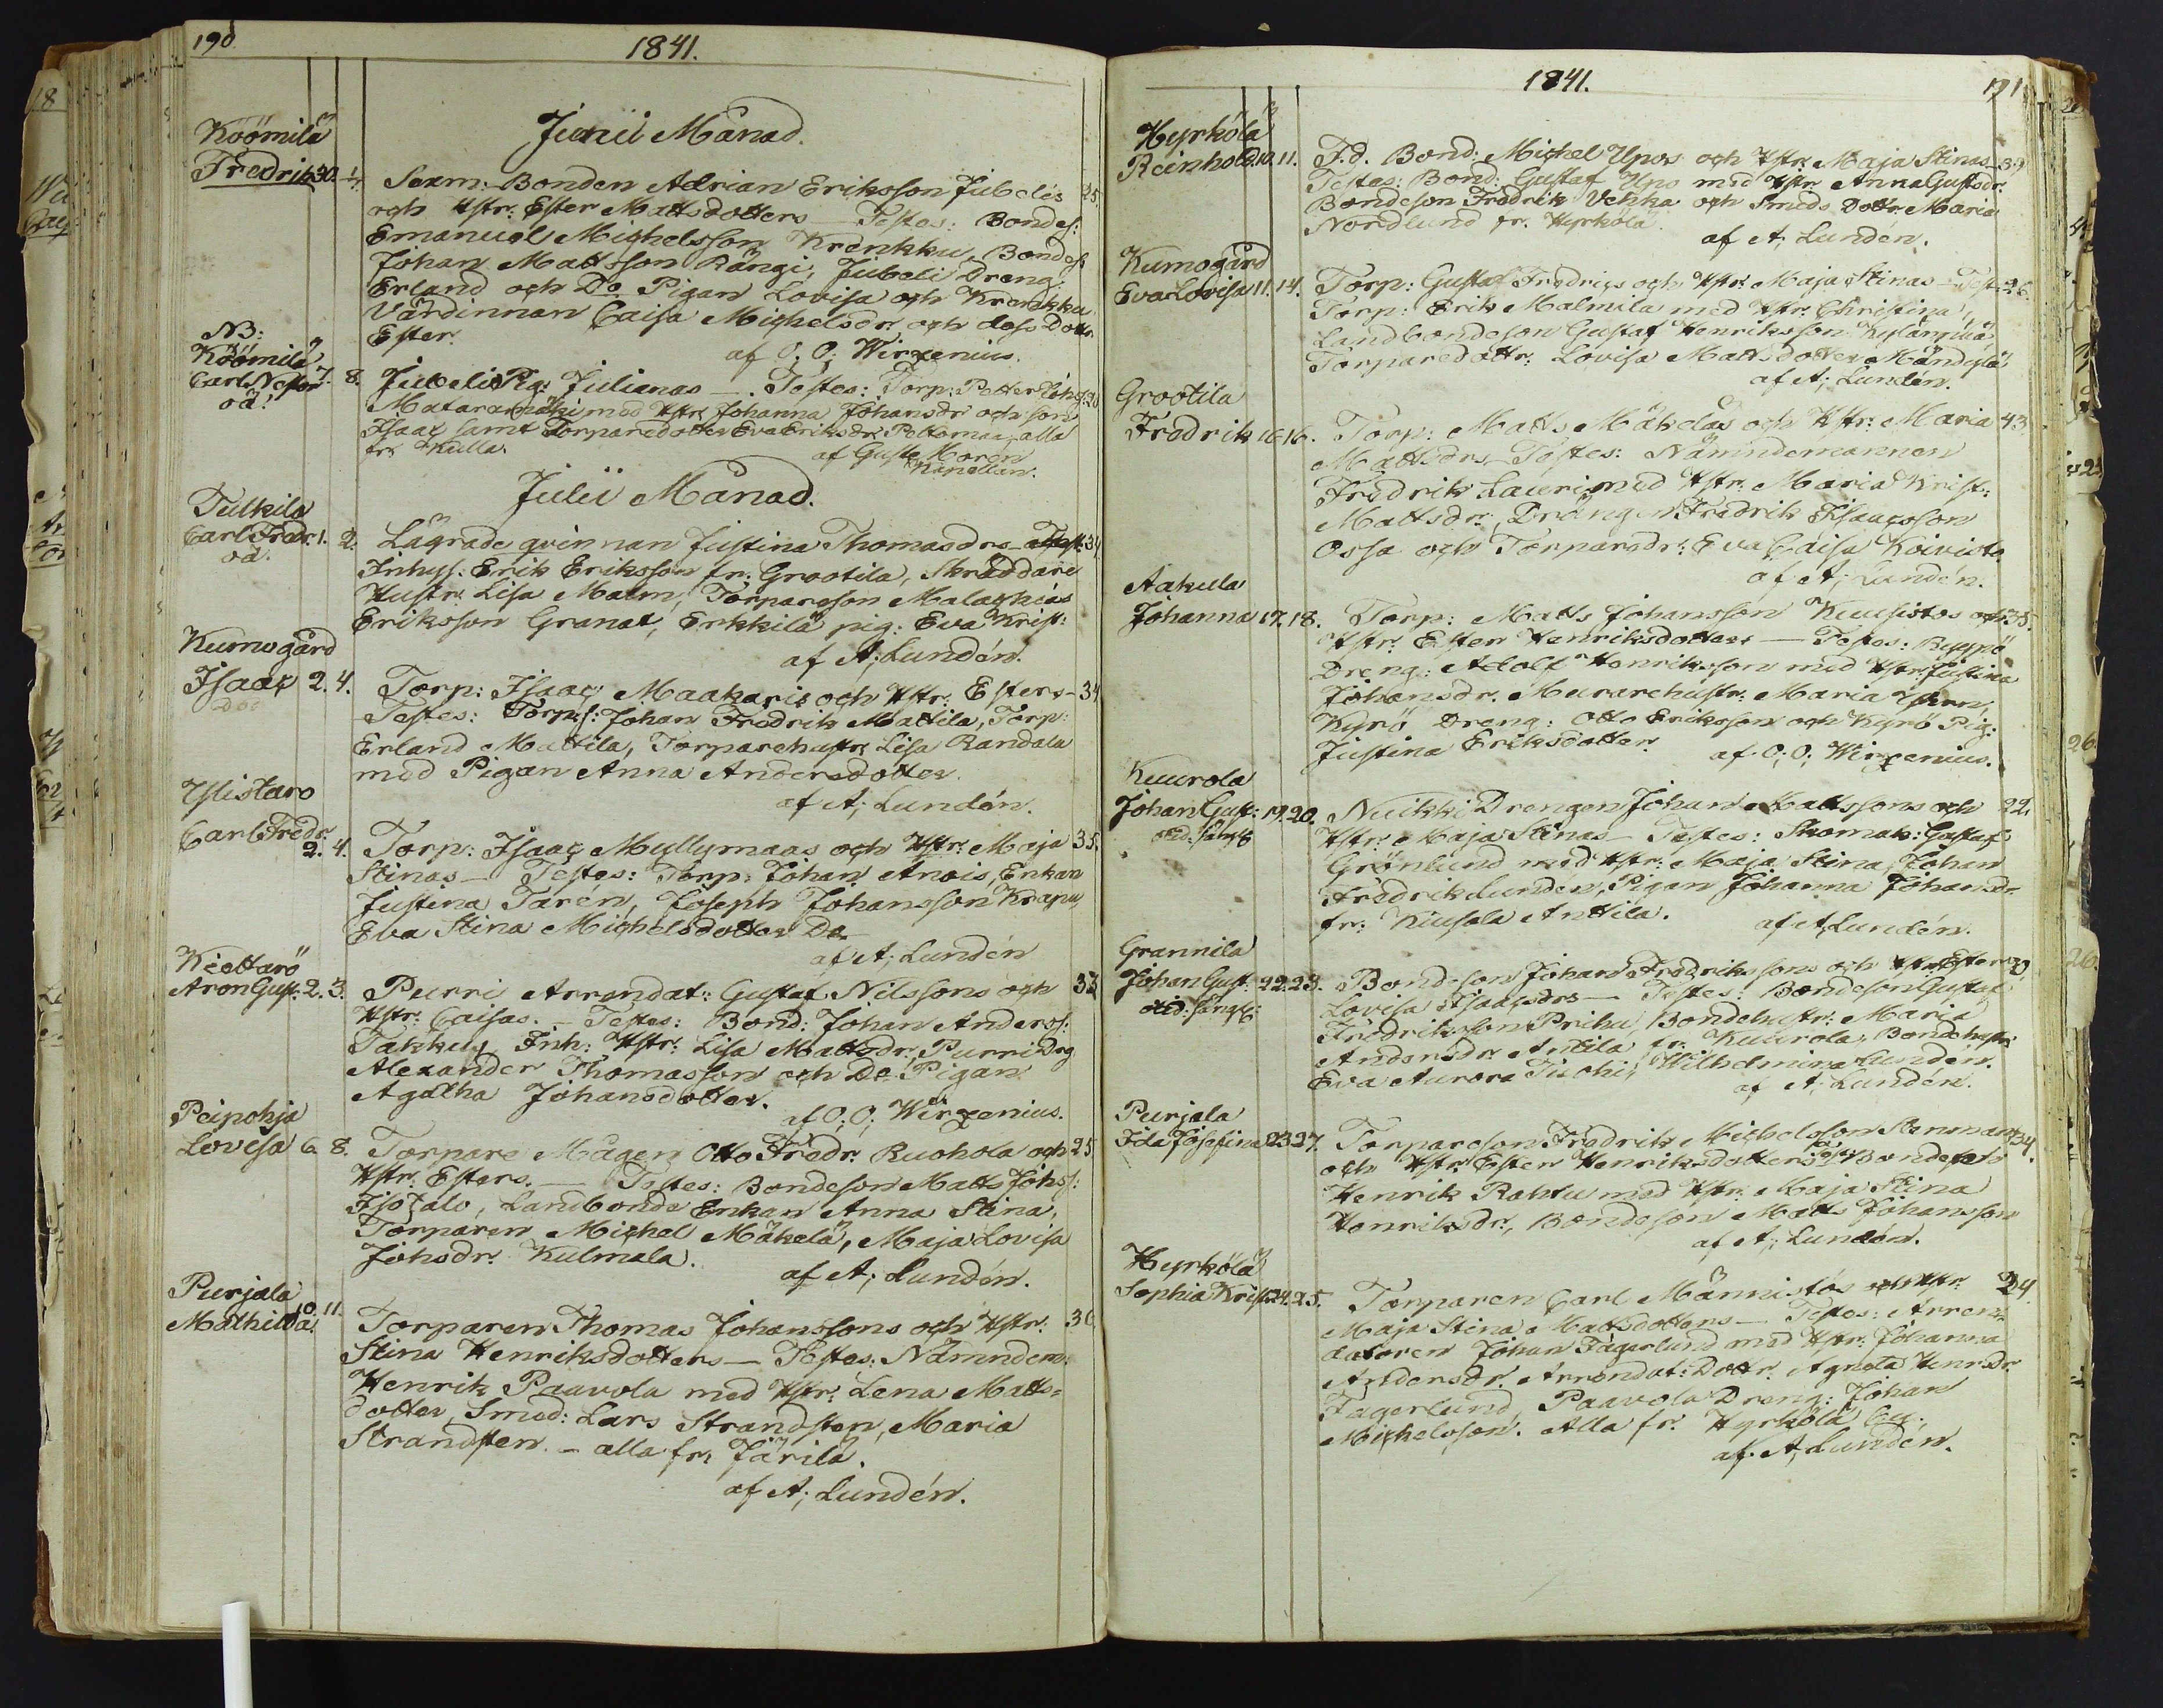 190.
1841.
Junii Månad.
Köömilä
Fredrik 30. 4/7. Sexm: Bonden Adrian Eriksson Jubelis 25.
och Hstr: Ester Mattsdotters — Testes: Bondes:
Emanuel Michelsson Krenkku, Bondes
Johan Mattsson Rängi, Jubeli Dreng:
Erland och Do Pigan Lovisa och Krenkku
Värdinnan Caisa Michelsdr. och dess Dottr.
Ester.
af O; O; Wirzenius.
NB:
Köömilä
Carl Nestor 7. 8. Jubeli Pig: Julianas —. Testes: Torp: Petter Johss: 20
oä!
Mataramäki med Hstr. Johanna Johansdr och son
Isaac samt Torparedotter Eva Eriksdr. Peltomaa, alla
fr. Kulla.
af Gust. Moren
Kapellan.
Julii Månad.
Tulkila
Carl Fredr. 1. 2. Lägrade qvinnan Justina Thomasdrs — Test: 34
oä.
Inhys: Erik Eriksson fr. Grootila, Skräddare
Hustr. Lisa Malm, Torpareson Malackias
Eriksson Granat, Erkkilä pig: Eva Krist:
af A; Lundén.
Kumogård
Isaac 2. 4. Torp: Isaac Maakaris och Hstr. Esters — 34
Testes: Torp:s: Johan Fredrik Mattila, Torp:
Erland Mattila, Torparehustr. Lisa Randala
med Pigan Anna Andersdotter.
af A; Lundén.
Ylistaro
Carl Fredr.
2. 4. Torp: Isaac Myllymaas och Hstr. Maja 35.
Stinas — Testes: Torp: Johan Anois, Enkan
Justina Tarén, Joseph Johansson Krapu,
Eva Stina Michelsdotter Do
af A; Lundén
Kiettarö
Aron Gust. 2. 3. Purri Arrendat: Gustaf Nilssons och 33
Hstr. Caisas. — Testes: Bond: Johan Anderss:
Takku, Inh: Hstr. Lisa Mattsdr, Purri Drg
Alexander Thomasson och Do Pigan
Agatha Johansdotter.
af O; O; Wirzenius.
Peipohja
Lovisa 6. 8. Torpare Mågen Otto Fredr. Ruohola och 25.
Hstr. Esters. — Testes: Bondeson Matts Johss:
Isotalo, Landbonde Enkan Anna Stina,
Torparen Michel Mäkelä, Maja Lovisa
Johsdr. Kulmala.
af A; Lundén.
Purjala
Mathilda. 10. 11. Torparen Thomas Johanssons och Hstr. 36
Stina Henriksdotters — Testes: Nämndem:
Henrik Paavola med Hstr. Lena Matts-
dotter, Smed: Lars Strandsten, Maria
Strandsten. — alla fr. Järilä.
af A; Lundén.
1841.
191
Hyrkölä
Reinhold. 10. 11. F.d. Bond: Michel Upos och Hstr. Maja Stinas — 39
Testes: Bond: Gustaf Upo med Hstr Anna Gustsdr.
Bondeson Fredrik Vehka och Smeds Dottr. Maria
Nordlund fr. Hyrkölä.
af A; Lundén.
Kumogård
Eva Lovisa 11. 14. Torp: Gustaf Fredrics och Hstr. Maja Stinas — Test: 26.
Torp: Erik Malmila med Hstr. Christina,
Landbondeson Gustaf Henriksson Kylänpää,
Torparedottr. Lovisa Mattsdotter Mändylä
af A; Lundén.
Grootila
Fredrik 16 16. Torp: Matts Mäkeläs och Hstr. Maria 43.
Mattsdrs — Testes: Nämndemannen
Fredrik Lauri med Hstr. Maria Krist:
Mattsdr., Drängen Fredrik Isaacsson
Ossa och Torparedr. Eva Caisa Koivisto
af A; Lundén.
Aakula
Johanna 17. 18. Torp: Matts Johansson Kuusistos och 35.
Hstr. Ester Henriksdotters — Testes: Ryypö
Dreng: Adolf Henriksson med Hstr. Justina
Johansdr. Murarehustr. Maria Ytern,
Kyrö Dreng: Otto Eriksson och Kyrö Pig:
Justina Eriksdotter.
af O; O; Wirzenius.
Kuurola
Johan Gust: 19. 20. Nuikki Drengen Johan Mattssons och 22.
Hstr. Maja Stinas — Testes: Skomak: Gustaf
Grönlund med Hstr. Maja Stina, Johan
Fredrik Lundén, Pigan Johanna Johansdr
fr. Kiusala Anttila.
af A; Lundén.
Grannila
Johan Gust. 22. 23. Bondeson Johan Fredrikssons och Hstr. Ester
Lovisa Isaacsdrs — Testes: Bondeson Gustaf
Fredriksson Prihu, Bondehustr. Maria
Andersdr Anttila fr. Kuurola, Bondehustr.
Eva Aurora Tuohi, Wilhelmina Lundén.
af A; Lundén.
Purjala
Ida Josefina 23. 27. Torpareson Fredrik Michelsson Stenmans 34.
och Hstr. Ester Henriksdotters — Test: Bondeson
Henrik Rahtu med Hstr. Maja Stina
Henriksdr., Bondeson Matts Johansson
af A; Lundén.
Hyrkölä
Sophia Krist. 24. 25. Torparen Carl Männistös och Hstr. 24
Maja Stina Mattsdotters — Testes: Arren-
datoren Johan Fagerlund med Hstr. Johanna
Andersdr. Arrendat: Dottr. Agneta Henr.Dr.
Fagerlund, Paavola Dreng: Johan
Michelsson. Alla fr. Hyrkölä
af. A; Lundén.